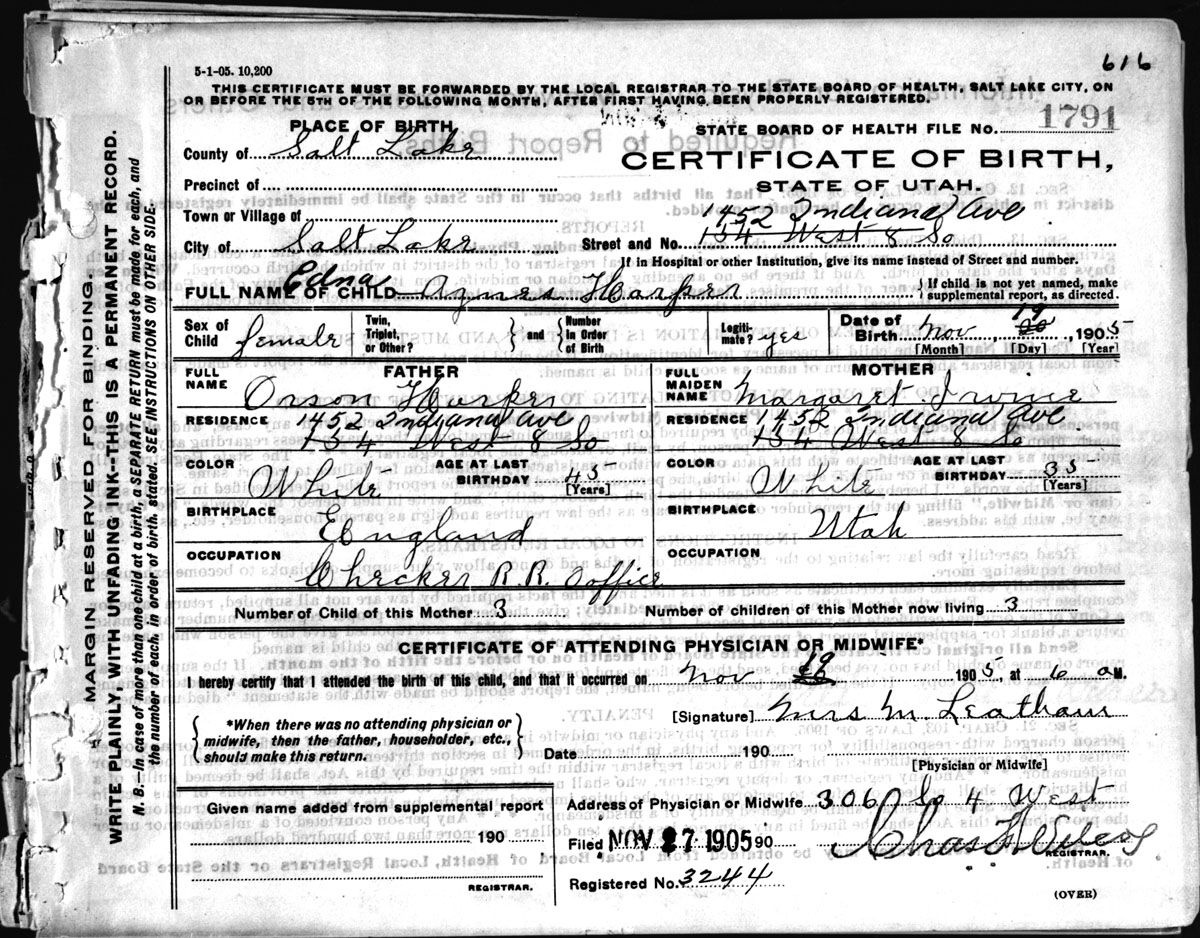 616
5-1-05. 10,200
THIS CERTIFICATE MUST BE FORWARDED BY THE LOCAL REGISTRAR TO THE STATE BOARD OF HEALTH, SALT LAKE CITY, ON
OR BEFORE THE 5TH OF THE FOLLOWING MONTH, AFTER FIRST HAVING BEEN PROPERLY REGISTERED.
PLACE OF BIRTH
STATE BOARD OF HEALTH FILE No. 1791
County of Salt Lake
CERTIFICATE OF BIRTH,
Precinct of
STATE OF UTAH.
Town or Village of
1452 Indiana Ave
City of Salt Lake Street and No. 154 West 8 So
If in Hospital or other Institution, give its name instead of Street and number.
FULL NAME OF CHILD Edna Agnes Harper { If child is not yet named, make supplemental report, as directed.
Sex of Child female Twin, Triplet, or Other? } and { Number in Order of Birth Legiti- mate? yes Date of Birth Nov 19 20, 1905
[Month] [Day] [Year]
FATHER
MOTHER
FULL NAME Orson Harper
FULL MAIDEN NAME Margaret Irvine
RESIDENCE 1452 Indiana Ave
154 West 8 So
RESIDENCE 1452 Indiana Ave
154 West 8 So
COLOR White AGE AT LAST BIRTHDAY 45 [Years]
COLOR White AGE AT LAST BIRTHDAY 35 [Years]
BIRTHPLACE England
BIRTHPLACE Utah
OCCUPATION Checker R.R. Office
OCCUPATION
Number of Child of this Mother 3 Number of children of this Mother now living 3
CERTIFICATE OF ATTENDING PHYSICIAN OR MIDWIFE*
I hereby certify that I attended the birth of this child, and that it occurred on Nov 19 1905, at 6 a M.
{ *When there was no attending physician or midwife, then the father, householder, etc., should make this return. }
[Signature] Mrs M. Leatham
Date 190
[Physician or Midwife]
Given name added from supplemental report
190
REGISTRAR.
Address of Physician or Midwife 306 So 4 West
Filed NOV 27 1905 90 Chas
REGISTRAR.
Registered No. 3244
(OVER)
MARGIN RESERVED FOR BINDING.
WRITE PLAINLY, WITH UNFADING INK--THIS IS A PERMANENT RECORD.
N. B.--In case of more than one child at a birth, a SEPARATE RETURN must be made for each, and
the number of each, in order of birth, stated. SEE INSTRUCTIONS ON OTHER SIDE.